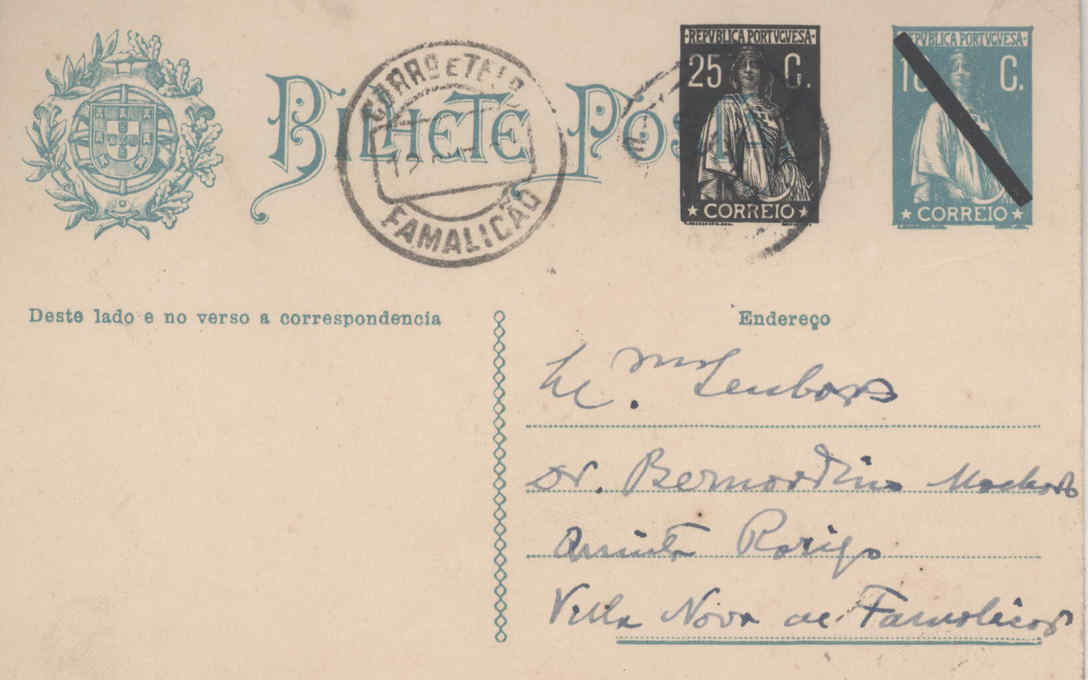 BILHETE POS
CORRO E TELO
19
FAMALICÃO
REPVBLICA PORTVGVESA
25 C.
CORREIO
REPVBLICA PORTVGVESA
C.
CORREIO
Deste lado e no verso a correspondencia
Endereço
Senhor
Dr. Bernardino Machado
Villa Nova de Famalicão